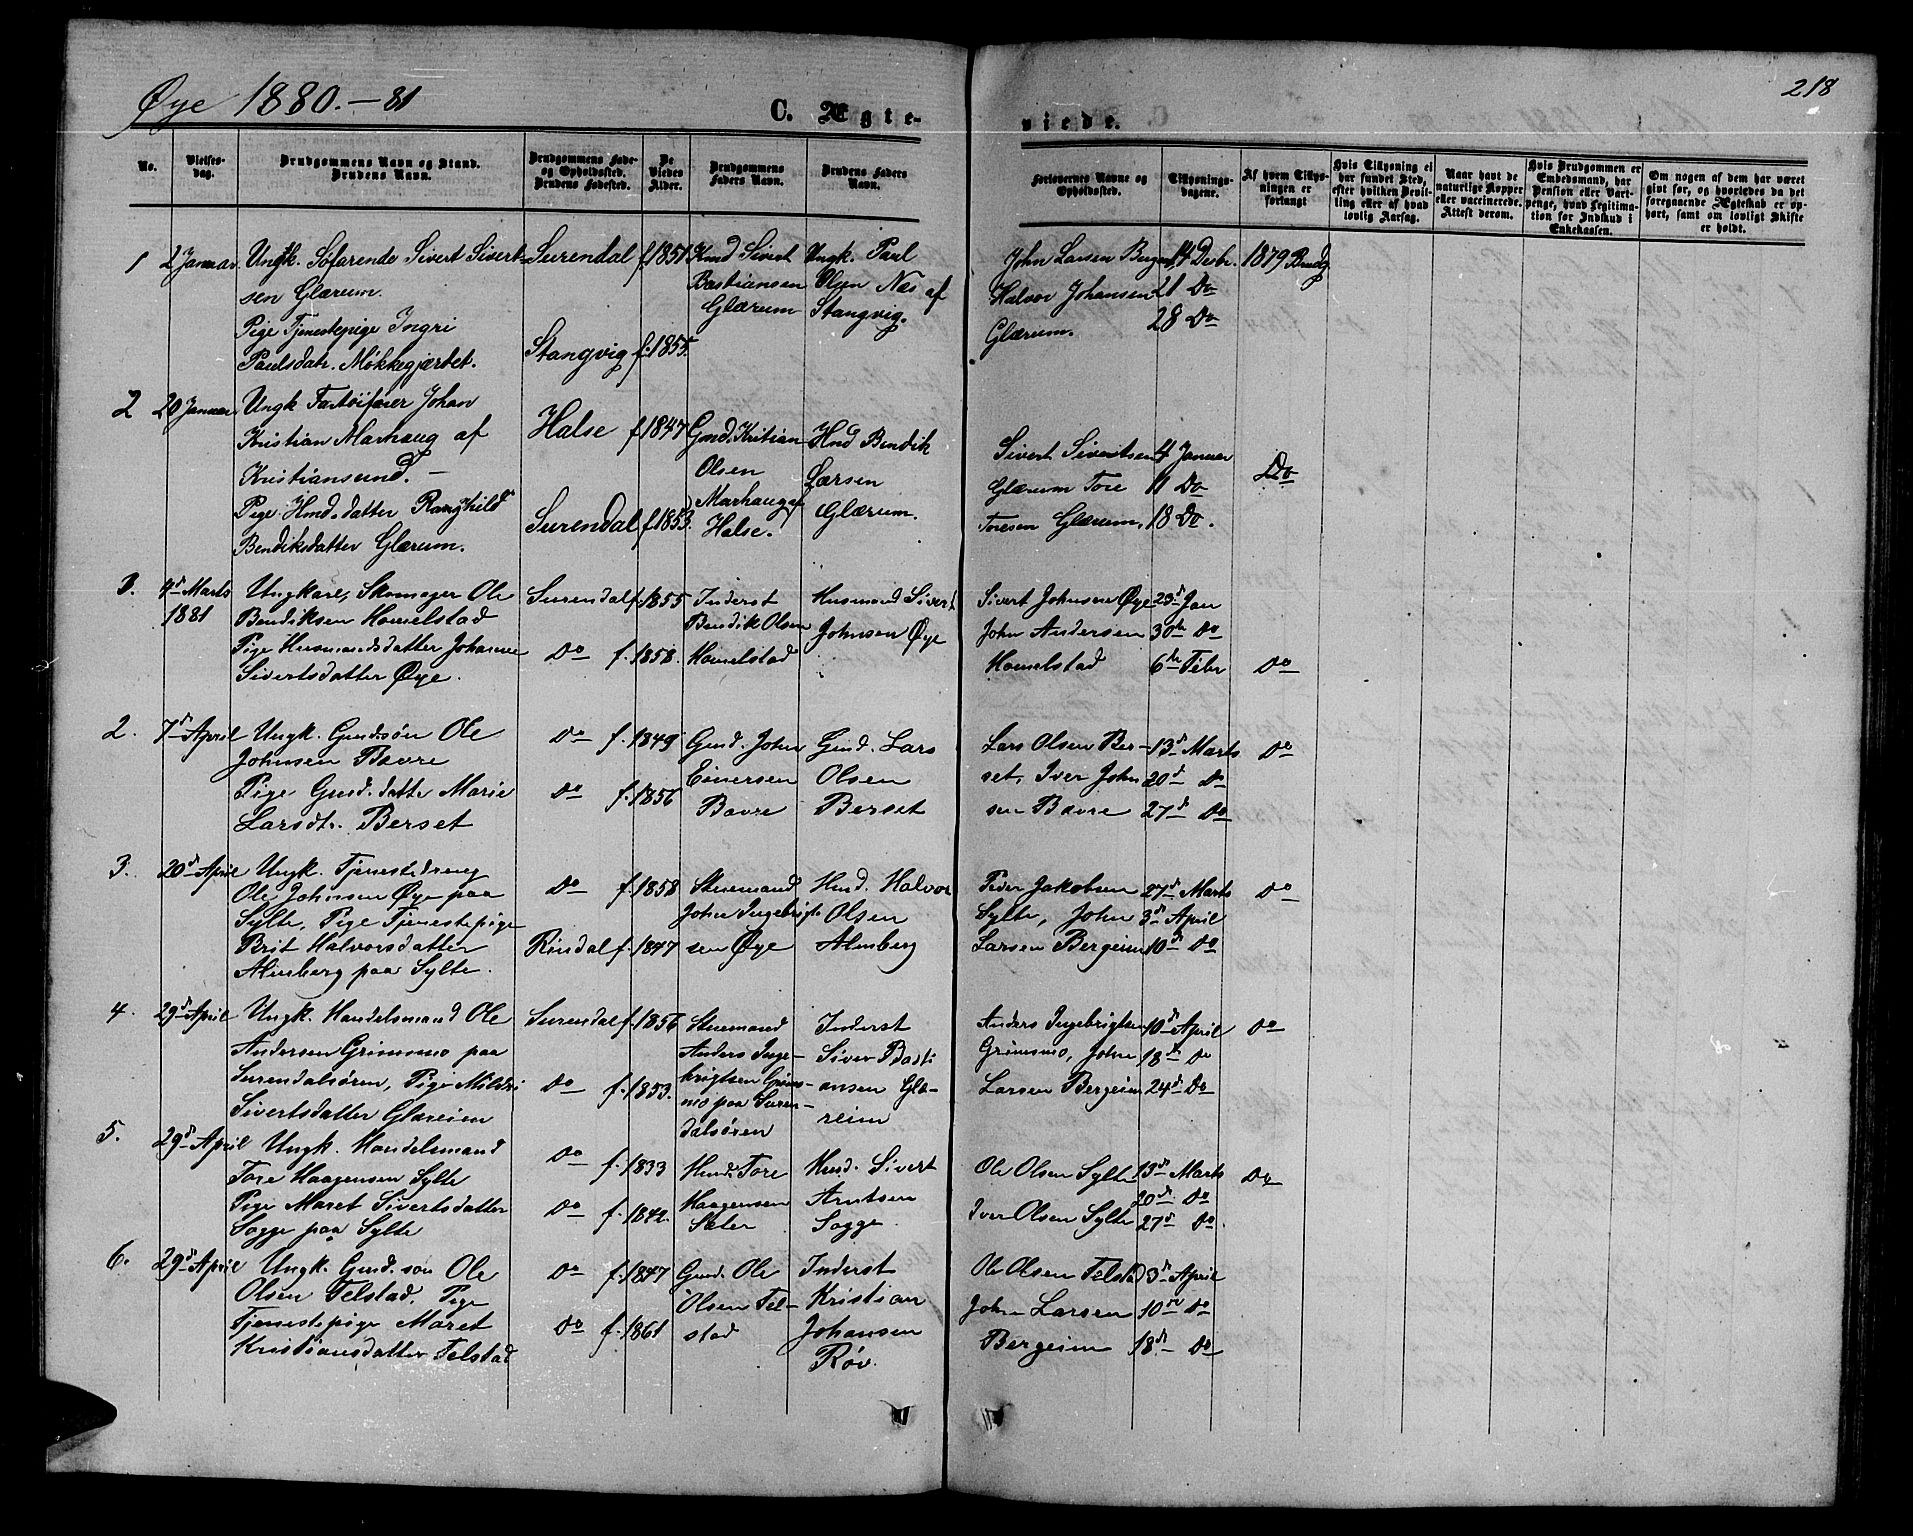 Øye 1880.-81
C. Ægte-
viede.
218
No.
Vielses-
dag.
Brudgommens Navn og Stand.
Brudens Navn.
Brudgommens Føde-
og Opholdssted.
Brudens Fødested.
De
Viedes
Alder.
Brudgommens
Faders Navn.
Brudens Faders
Navn.
Forlovernes Navne og
Opholdssted.
Tillysnings-
dagene.
Af hvem Tillys-
ningen er
forlangt
Hvis Tillysning ei
har fundet Sted,
efter hvilken Bevil-
ling eller af hvad
lovlig Aarsag.
Naar havt de
naturlige Kopper
eller vaccinerede.
Attest derom.
Hvis Brudgommen er
Embedsmand, har
Pension eller Vart-
penge, hvad Legitima-
tion for Indskud i
Enkekassen.
Om nogen af dem har været
gift før, og hvorledes da det
foregaaende Ægteskab er op-
hørt, samt om lovligt Skifte
er holdt.
1
2 Januar
Ungk. Søfarende Sivert Sivert-
sen Glærum.
Pige Tjenestepige Ingri
Paulsdatr. Møkkegjærtet.
Surendal
Stangvig
f.1851
f.1855.
Kmd Sivert
Bastiansen
Glærum
Ungk. Paul
Olsen Næs af
Stangvig.
John Larsen
Halvor Johansen
Glærum.
14 Decbr. 1879
21 Do
28 Do
Brudg.
2
20 Januar
Ungk Fartøifører Johan
Kristian Marhaug af
Kristiansund. -
Pige Hmds.datter Ranghild
Bendiksdatter Glærum.
Halse
Surendal
f.1847
f.1853.
Gmd. Kritian
Olsen
Marhaug af
Halse.
Hmd Bendik
Larsen
Glærum.
Sivert Sivertsen
Glærum Tore
Toresen Glærum.
4 Januar
11 Do
18 Do.
Do
3.
4de Marts
1881
Ungkarl, Skomager Ole
Bendiksen Homelstad
Pige Husmandsdatter Johanne
Sivertsdatter Øye.
Surendal
Do
f.1855
f.1858.
Inderst
Bendik Olsen
Homelstad
Husmand Sivert
Johnsen Øye
Sivert Johnsen Øye
John Andersen
Homelstad
23d Jan
30te Do
6te Febr
Do
2.
7d April
Ungk. Gmdsøn Ole
Johnsen Bævre
Pige Gmd.datter Marie
Larsdt. Berset
Do
Do
f.1849
f.1856
Gmd. John
Einersen
Bævre
Gmd. Lars
Olsen
Berset
Lars Olsen Ber-
set, Iver John
sen Bævre
13d Marts
20d Do
27d Do
Do
3.
20d April
Ungk. Tjenestedreng
Ole Johnsen Øye paa
Sylte, Pige Tjenestepige
Brit Halvorsdatter
Almberg paa Sylte.
Do
Rindal
f.1858
f.1847
Stuemand
John Ingebrigt-
sen Øye
Hmd. Halvor
Olsen
Almberg
Peder Jakobsen
Sylte, John
Larsen Bergeim
27d Marts
3d April
10d Do
Do
4.
29d April
Ungk. Handelsmand Ole
Andersen Grimsmo paa
Surendalsøren, Pige Mildri
Sivertsdatter Glæreim
Surendal
Do
f.1856
f.1853.
Stuemand
Anders Inge-
brigtsen Grims-
mo paa Suren-
dalsøren
Inderst
Siver Basti
ansen Glæ-
reim
Anders Ingebrigtsen
Grimsmo, John
Larsen Bergeim
10d April
18d Do
24d Do
Do
5.
29d April
Ungk. Handelsmand
Tore Haagensen Sylte
Pige Maret Sivertsdatter
Sogge paa Sylte
Do
Do
f.1833
f.1842.
Hmd. Tore
Haagensen
Sæter
Hmd. Sivert
Arntsen
Sogge
Ole Olsen Sylte
Iver Olsen Sylte
13d Marts
20d Do
27d Do.
Do
6.
29d April
Ungk. Gmd. søn Ole
Olsen Telstad. Pige
Tjenestepige Maret
Kristiansdatter Telstad
Do
Do
f.1847
f.1861
Gmd. Ole
Olsen Tel-
stad
Inderst
Kristian
Johansen
Røv.
Ole Olsen Telstad
John Larsen
Bergeim
3d April
10de Do
18d Do